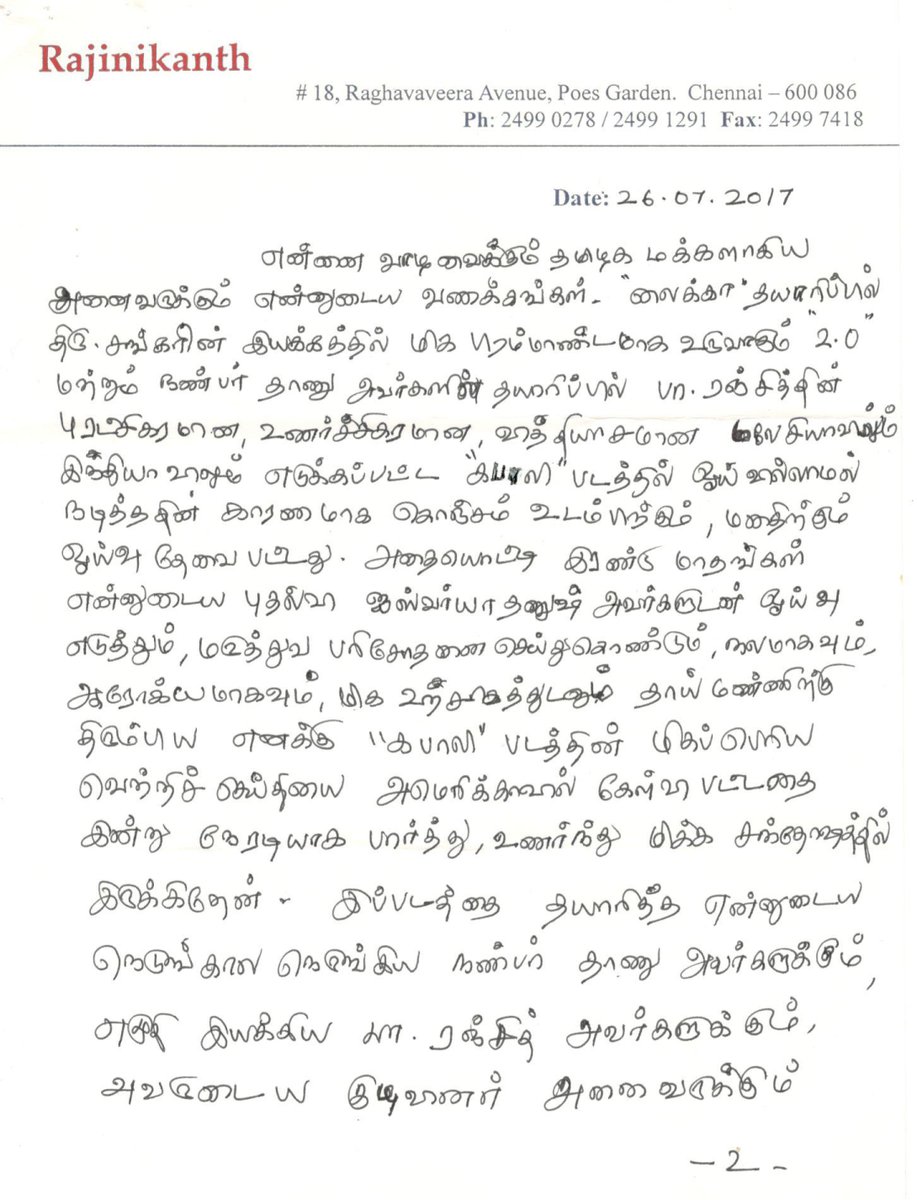 Rajinikanth
# 18, Raghavaveera Avenue, Poes Garden. Chennai – 600 086
Ph: 2499 0278 / 2499 1291 Fax: 2499 7418
Date: 26.07.2017
என்னை வாழவைக்கும் தமிழக மக்களாகிய
அனைவருக்கும் என்னுடைய வணக்கங்கள். "லைக்கா" தயாரிப்பில்
திரு. சங்கரின் இயக்கத்தில் மிக பிரம்மாண்டமாக உருவாகும் "2.0"
மற்றும் நண்பர் தாணு அவர்களின் தயாரிப்பில் பா. ரஞ்சித்தின்
புரட்சிகரமான, உணர்ச்சிகரமான, வித்தியாசமான மலேசியாவிலும்
இந்தியாவிலும் எடுக்கப்பட்ட "கபாலி" படத்தில் ஓய்வில்லாமல்
நடித்ததின் காரணமாக கொஞ்சம் உடம்பிற்கும், மனதிற்கும்
ஓய்வு தேவை பட்டது. அதையொட்டி இரண்டு மாதங்கள்
என்னுடைய புதல்வி ஐஸ்வர்யா தனுஷ் அவர்களுடன் ஓய்வு
எடுத்தும், மருத்துவ பரிசோதனை செய்துகொண்டும், நலமாகவும்,
ஆரோக்யமாகவும், மிக உற்சாகத்துடனும் தாய் மண்ணிற்கு
திரும்பிய எனக்கு "கபாலி" படத்தின் மிகப்பெரிய
வெற்றிச் செய்தியை அமெரிக்காவில் கேள்வி பட்டதை
இன்று நேரடியாக பார்த்து, உணர்ந்து மிக்க சந்தோஷத்தில்
இருக்கிறேன். இப்படத்தை தயாரித்த என்னுடைய
நெடுங்கால நெருங்கிய நண்பர் தாணு அவர்களுக்கும்,
எழுதி இயக்கிய பா. ரஞ்சித் அவர்களுக்கும்,
அவருடைய குழுவினர் அனைவருக்கும்
-2-